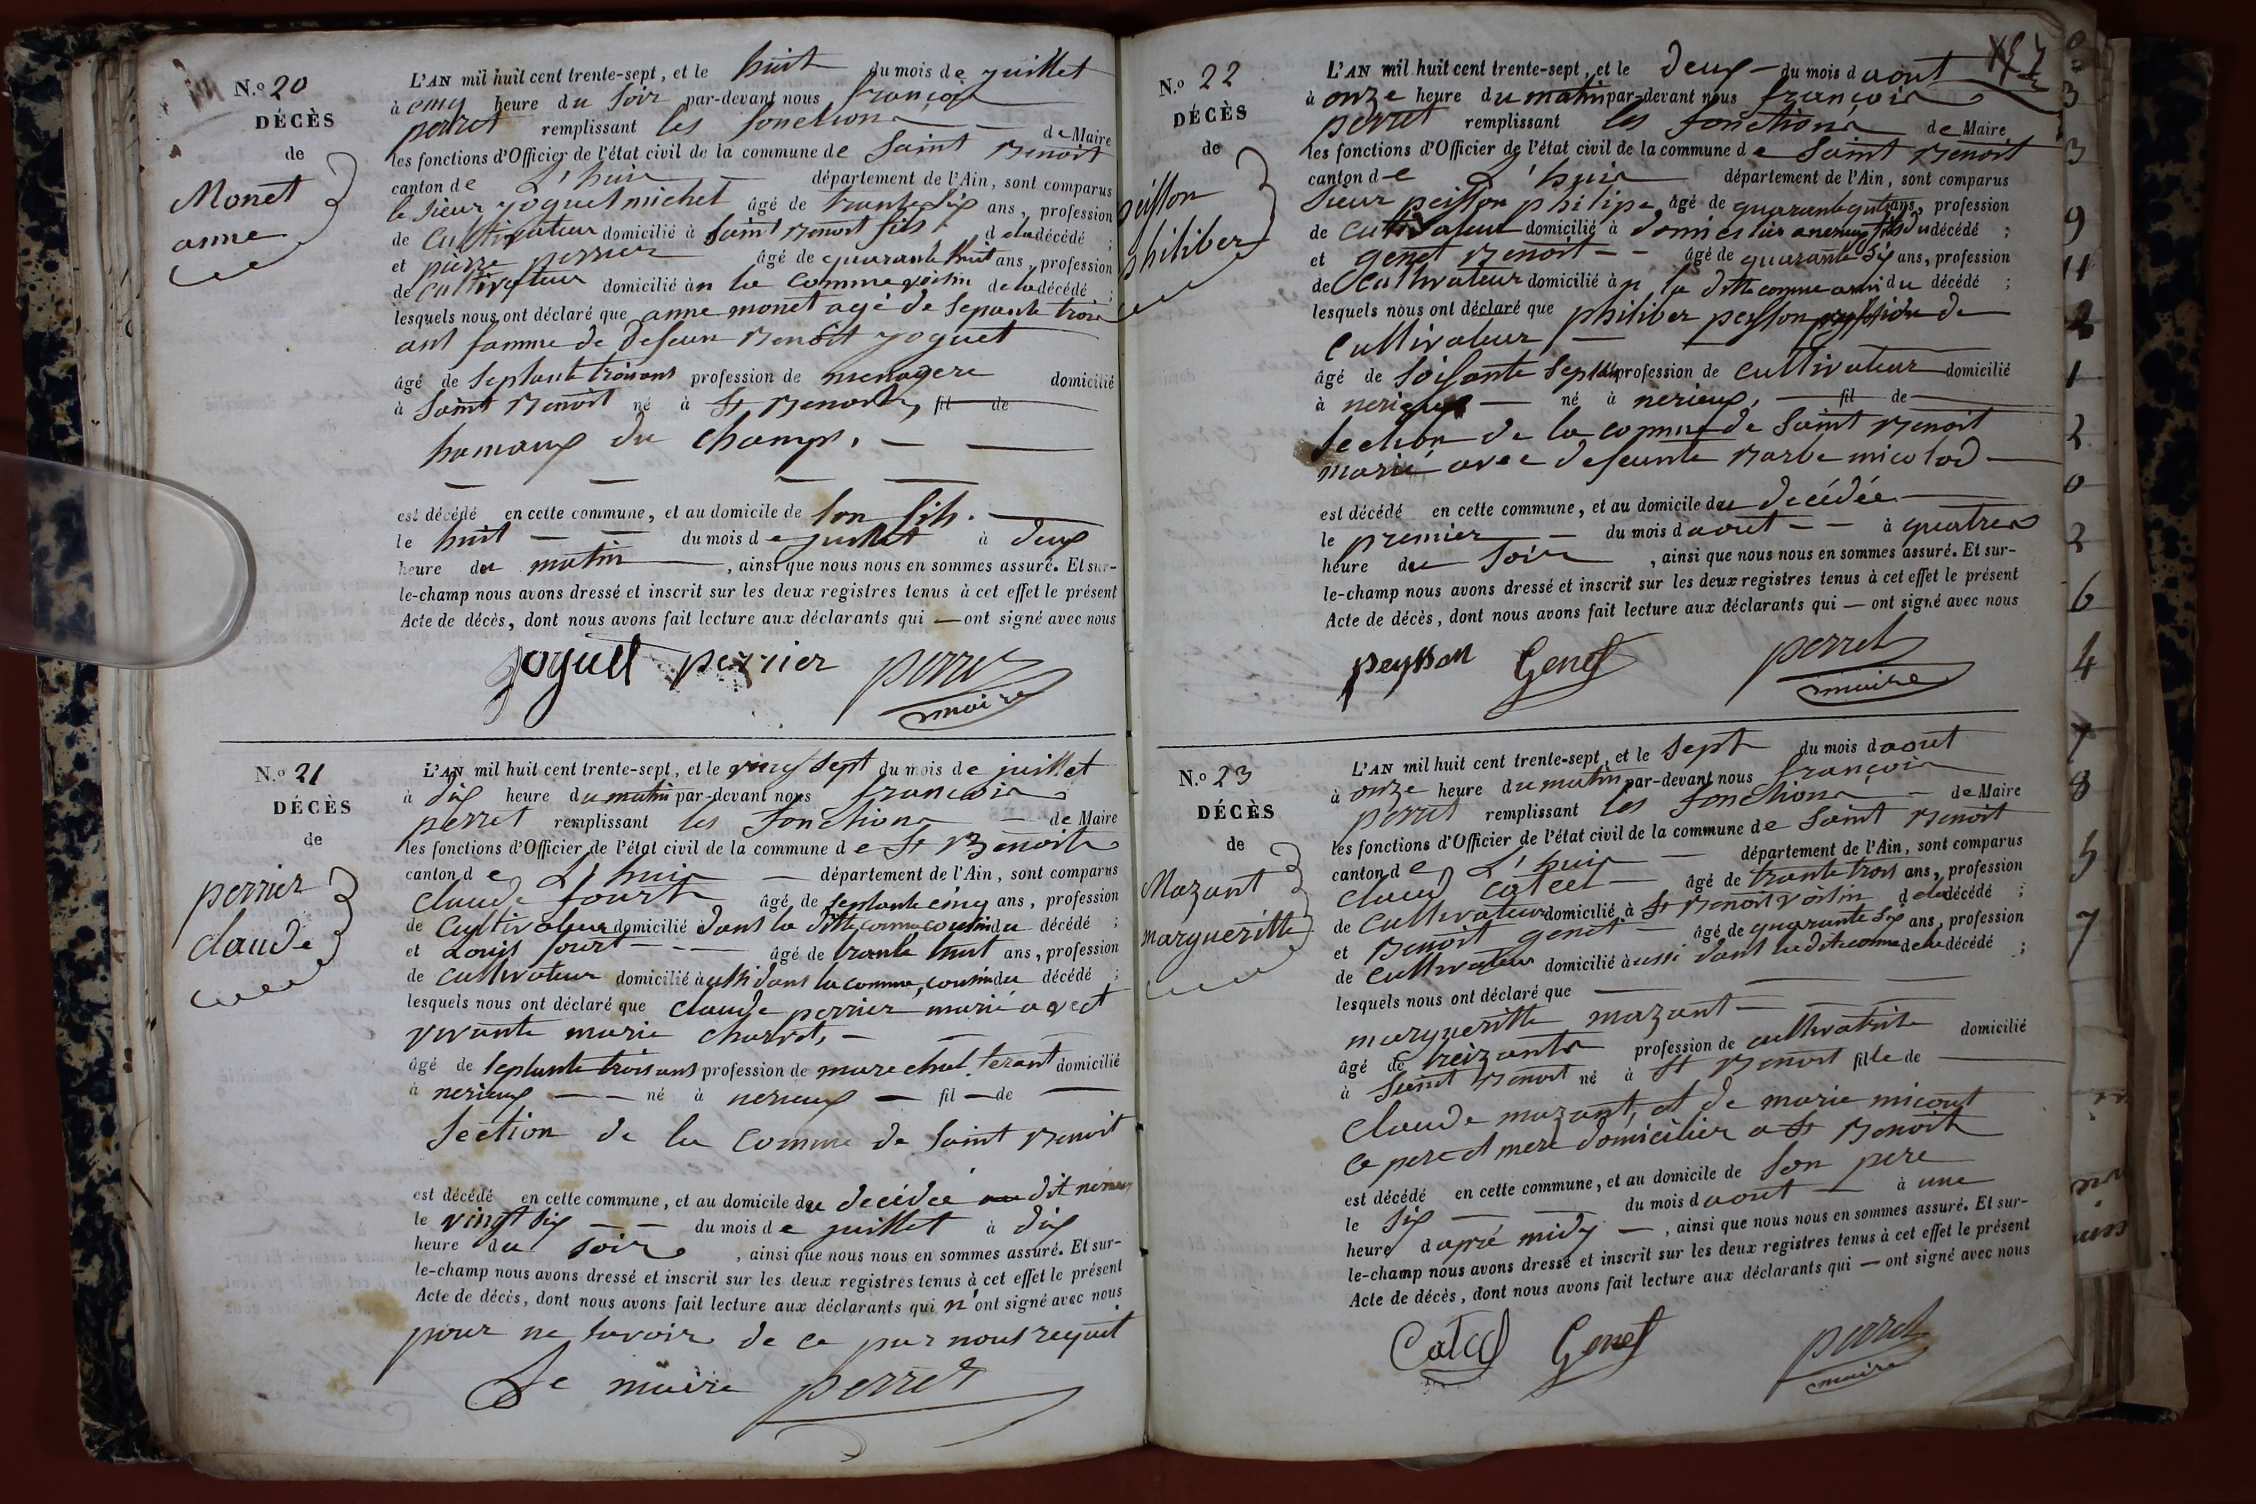 N.º 20
DÉCÈS
de
Monet
anne
L'AN mil huit cent trente-sept, et le huit du mois de juillet
à cinq heure du soir par-devant nous françois
perret remplissant les fonctions de Maire
les fonctions d'Officier de l'état civil de la commune de Saint Benoit
canton de L'huis département de l'Ain, sont comparus
le sieur joguet michel âgé de trante six ans, profession
de Cultivateur domicilié à Saint Benoit fils de la décédé ;
et pierre perrier âgé de quarante huit ans, profession
de Cultivateur domicilié àn la Commune voisin de la décédé ;
lesquels nous ont déclaré que anne monet agé de Septante trois
ant famme de defeun Benoit joguet
âgé de Septante trois ans profession de menagere domicilié
à Saint Benoit né à St Benoit, fil de
hamaux du Champs.
est décédé en cette commune, et au domicile de son fils.
le huit du mois de juillet à deux
heure du matin, ainsi que nous nous en sommes assuré. Et sur-
le-champ nous avons dressé et inscrit sur les deux registres tenus à cet effet le présent
Acte de décès, dont nous avons fait lecture aux déclarants qui — ont signé avec nous
joguet perrier perret
maire
N.º 21
DÉCÈS
de
perrier
claude
L'AN mil huit cent trente-sept, et le vingt sept du mois de juillet
à dix heure du matin par-devant nous françois
perret remplissant les fonctions de Maire
les fonctions d'Officier de l'état civil de la commune de St Benoit
canton de L'huis département de l'Ain, sont comparus
claude fourt âgé de septante cinq ans, profession
de Cultivateur domicilié dans la ditte comune cousin du décédé ;
et Louis fourt âgé de trante huit ans, profession
de cultivateur domicilié à aussi dans la comune, cousin du décédé ;
lesquels nous ont déclaré que claude perrier marié avect
vivante marie charvet,
âgé de septante trois ans profession de marechal ferant domicilié
à nerieux né à nerieux fil de
Section de la Comune de Saint Benoit
est décédé en cette commune, et au domicile du decédée au dit nerieux
le vingt six du mois de juillet à dix
heure du soir, ainsi que nous nous en sommes assuré. Et sur-
le-champ nous avons dressé et inscrit sur les deux registres tenus à cet effet le présent
Acte de décès, dont nous avons fait lecture aux déclarants qui n'ont signé avec nous
pour ne savoir de ce par nous requit
Le maire perret
N.º 22
DÉCÈS
de
peisson
philiber
L'AN mil huit cent trente-sept, et le deux du mois d aout
à onze heure du matin par-devant nous françois
perret remplissant les fonctions de Maire
les fonctions d'Officier de l'état civil de la commune de Saint Benoit
canton de L'huis département de l'Ain, sont comparus
Sieur peisson philipe, âgé de quarante quatre ans, profession
de Cultivateur domicilié à fils du décédé ;
et genet Benoit âgé de quarante six ans, profession
de Cultivateur domicilié àn la ditte comune ami du décédé ;
lesquels nous ont déclaré que philiber peysson profession de
Cultivateur
âgé de soisante sept ans profession de cultivateur domicilié
à nerieux né à nerieux, fil de
Section de la comune de Saint Benoit
marié avec defeunte Barbe micolod
est décédé en cette commune, et au domicile du decédée
le premier du mois d aout à quatres
heure du soir, ainsi que nous nous en sommes assuré. Et sur-
le-champ nous avons dressé et inscrit sur les deux registres tenus à cet effet le présent
Acte de décès, dont nous avons fait lecture aux déclarants qui — ont signé avec nous
peysson Genet perret
maire
N.º 23
DÉCÈS
de
Mazant
margueritte
L'AN mil huit cent trente-sept, et le sept du mois d aout
à onze heure du matin par-devant nous françois
perret remplissant les fonctions de Maire
les fonctions d'Officier de l'état civil de la commune de Saint Benoit
canton de L'huis département de l'Ain, sont comparus
claud catcel âgé de trante trois ans, profession
de Cultivateur domicilié à St Benoit voisin de la décédé ;
et Benoit genet âgé de quarante six ans, profession
de Cultivateur domicilié à aussi dant la dite comune de la décédé ;
lesquels nous ont déclaré que
margueritte mazant
âgé de treizants profession de cultivatrite domicilié
à Saint Benoit né à St Benoit fille de
Claude mazant, et de marie micout
Ce pere et mere domicilier a St Benoit
est décédé en cette commune, et au domicile de son pere
le six du mois d aout à une
heure d aprié midy, ainsi que nous nous en sommes assuré. Et sur-
le-champ nous avons dressé et inscrit sur les deux registres tenus à cet effet le présent
Acte de décès, dont nous avons fait lecture aux déclarants qui — ont signé avec nous
Catcel Genet perret
maire